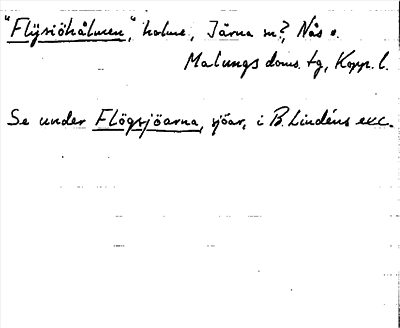 "Flÿsiöhålmen", holme, Järna sn?, Nås o.
Malungs doms. tg, Kopp. l.
Se under Flögsjöarna, sjöar, i B. Lindéns exc.